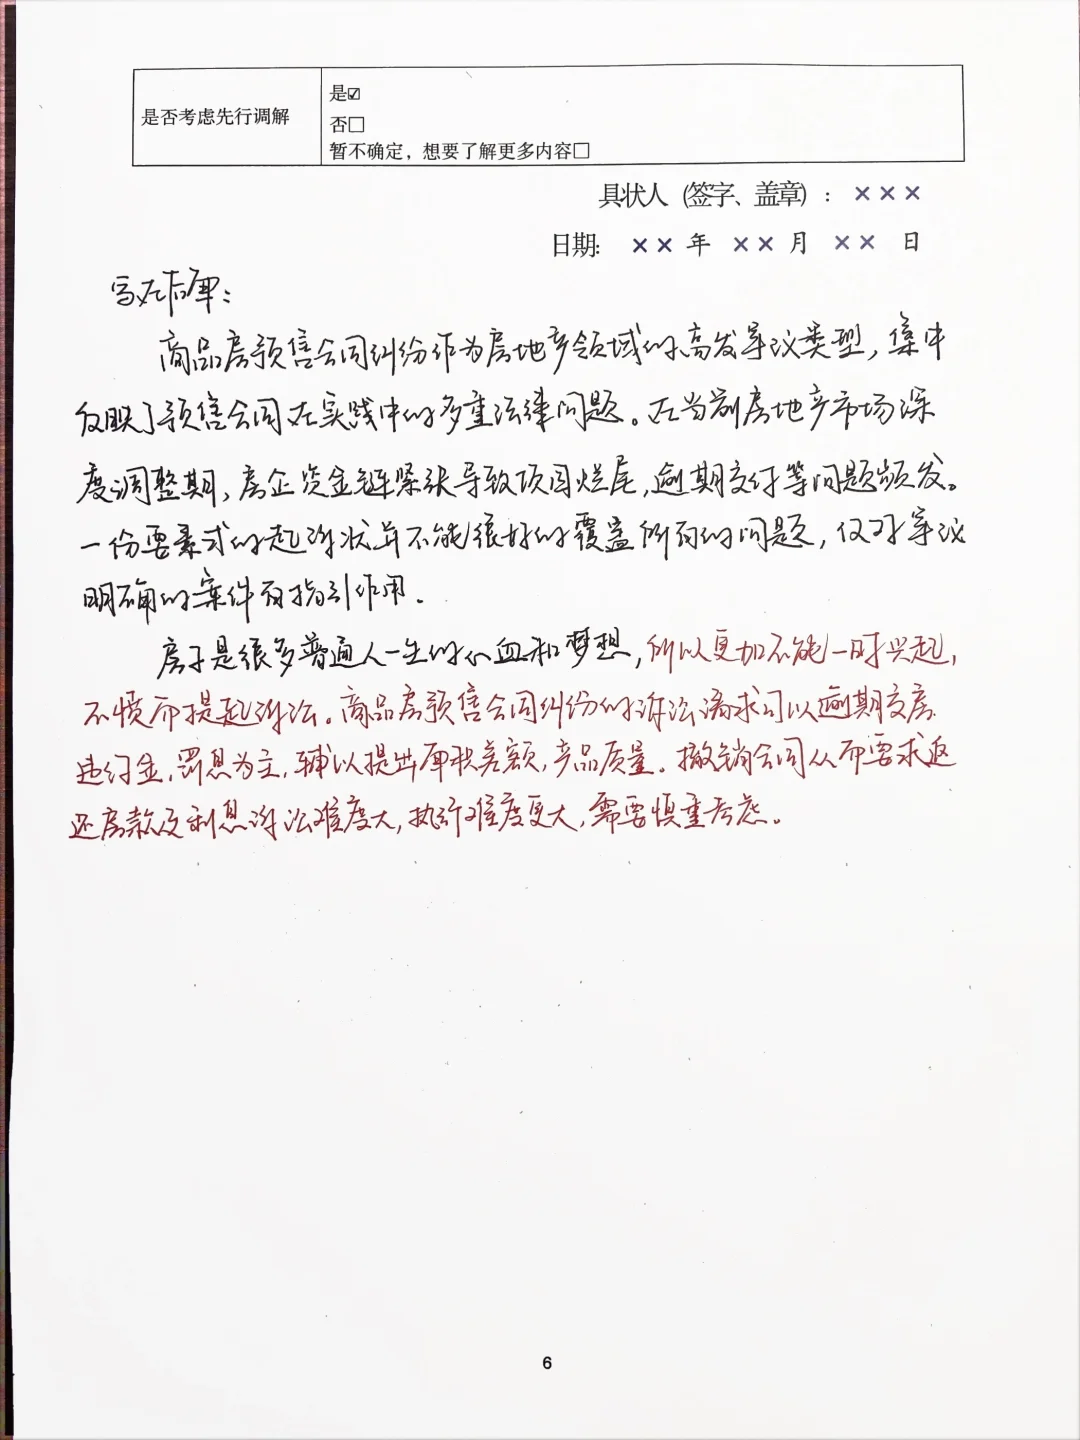 是否考虑先行调解
是☑
否☐
暂不确定，想要了解更多内容☐
具状人（签字、盖章）：×××
日期：×× 年 ×× 月 ×× 日
写在后面：
商品房预售合同纠纷作为房地产领域的高发争议类型，集中
反映了预售合同在实践中的多重法律问题。在当前房地产市场深
度调整期，房企资金链紧张导致项目烂尾，逾期交付等问题频发。
一份要素式的起诉状并不能很好的覆盖所有的问题，仅对争议
明确的案件有指引作用.
房子是很多普通人一生的心血和梦想，所以更加不能一时兴起，
不愤而提起诉讼。商品房预售合同纠纷的诉讼请求可以逾期交房
违约金，罚息为主，辅以提出面积差额，产品质量。撤销合同从而要求返
还房款及利息诉讼难度大，执行难度更大，需要慎重考虑。
6